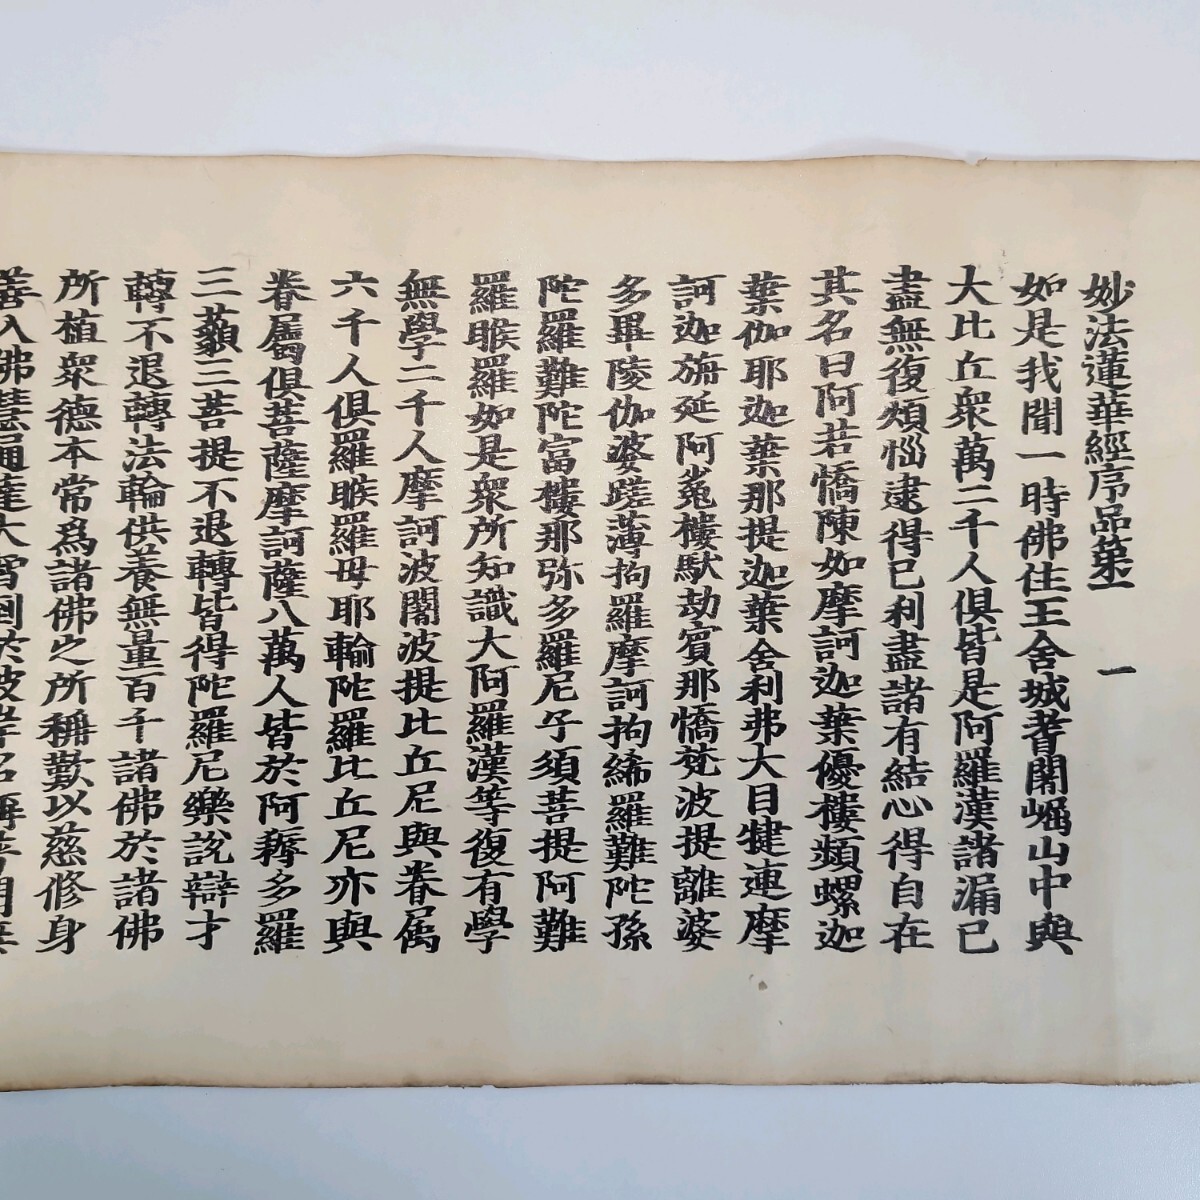 妙法蓮華經序品第一　一
如是我聞一時佛住王舍城耆闍崛山中與
大比丘衆萬二千人俱皆是阿羅漢諸漏已
盡無復煩惱逮得己利盡諸有結心得自在
其名曰阿若憍陳如摩訶迦葉優樓頻螺迦
葉伽耶迦葉那提迦葉舍利弗大目犍連摩
訶迦旃延阿㝹樓馱劫賓那憍梵波提離婆
多畢陵伽婆蹉薄拘羅摩訶拘絺羅難陀孫
陀羅難陀富樓那弥多羅尼子須菩提阿難
羅睺羅如是衆所知識大阿羅漢等復有學
無學二千人摩訶波闍波提比丘尼與眷属
六千人俱羅睺羅母耶輸陀羅比丘尼亦與
眷屬俱菩薩摩訶薩八萬人皆於阿耨多羅
三藐三菩提不退轉皆得陀羅尼樂說辯才
轉不退轉法輪供養無量百千諸佛於諸佛
所植衆德本常爲諸佛之所稱歎以慈修身
善入佛慧通達大